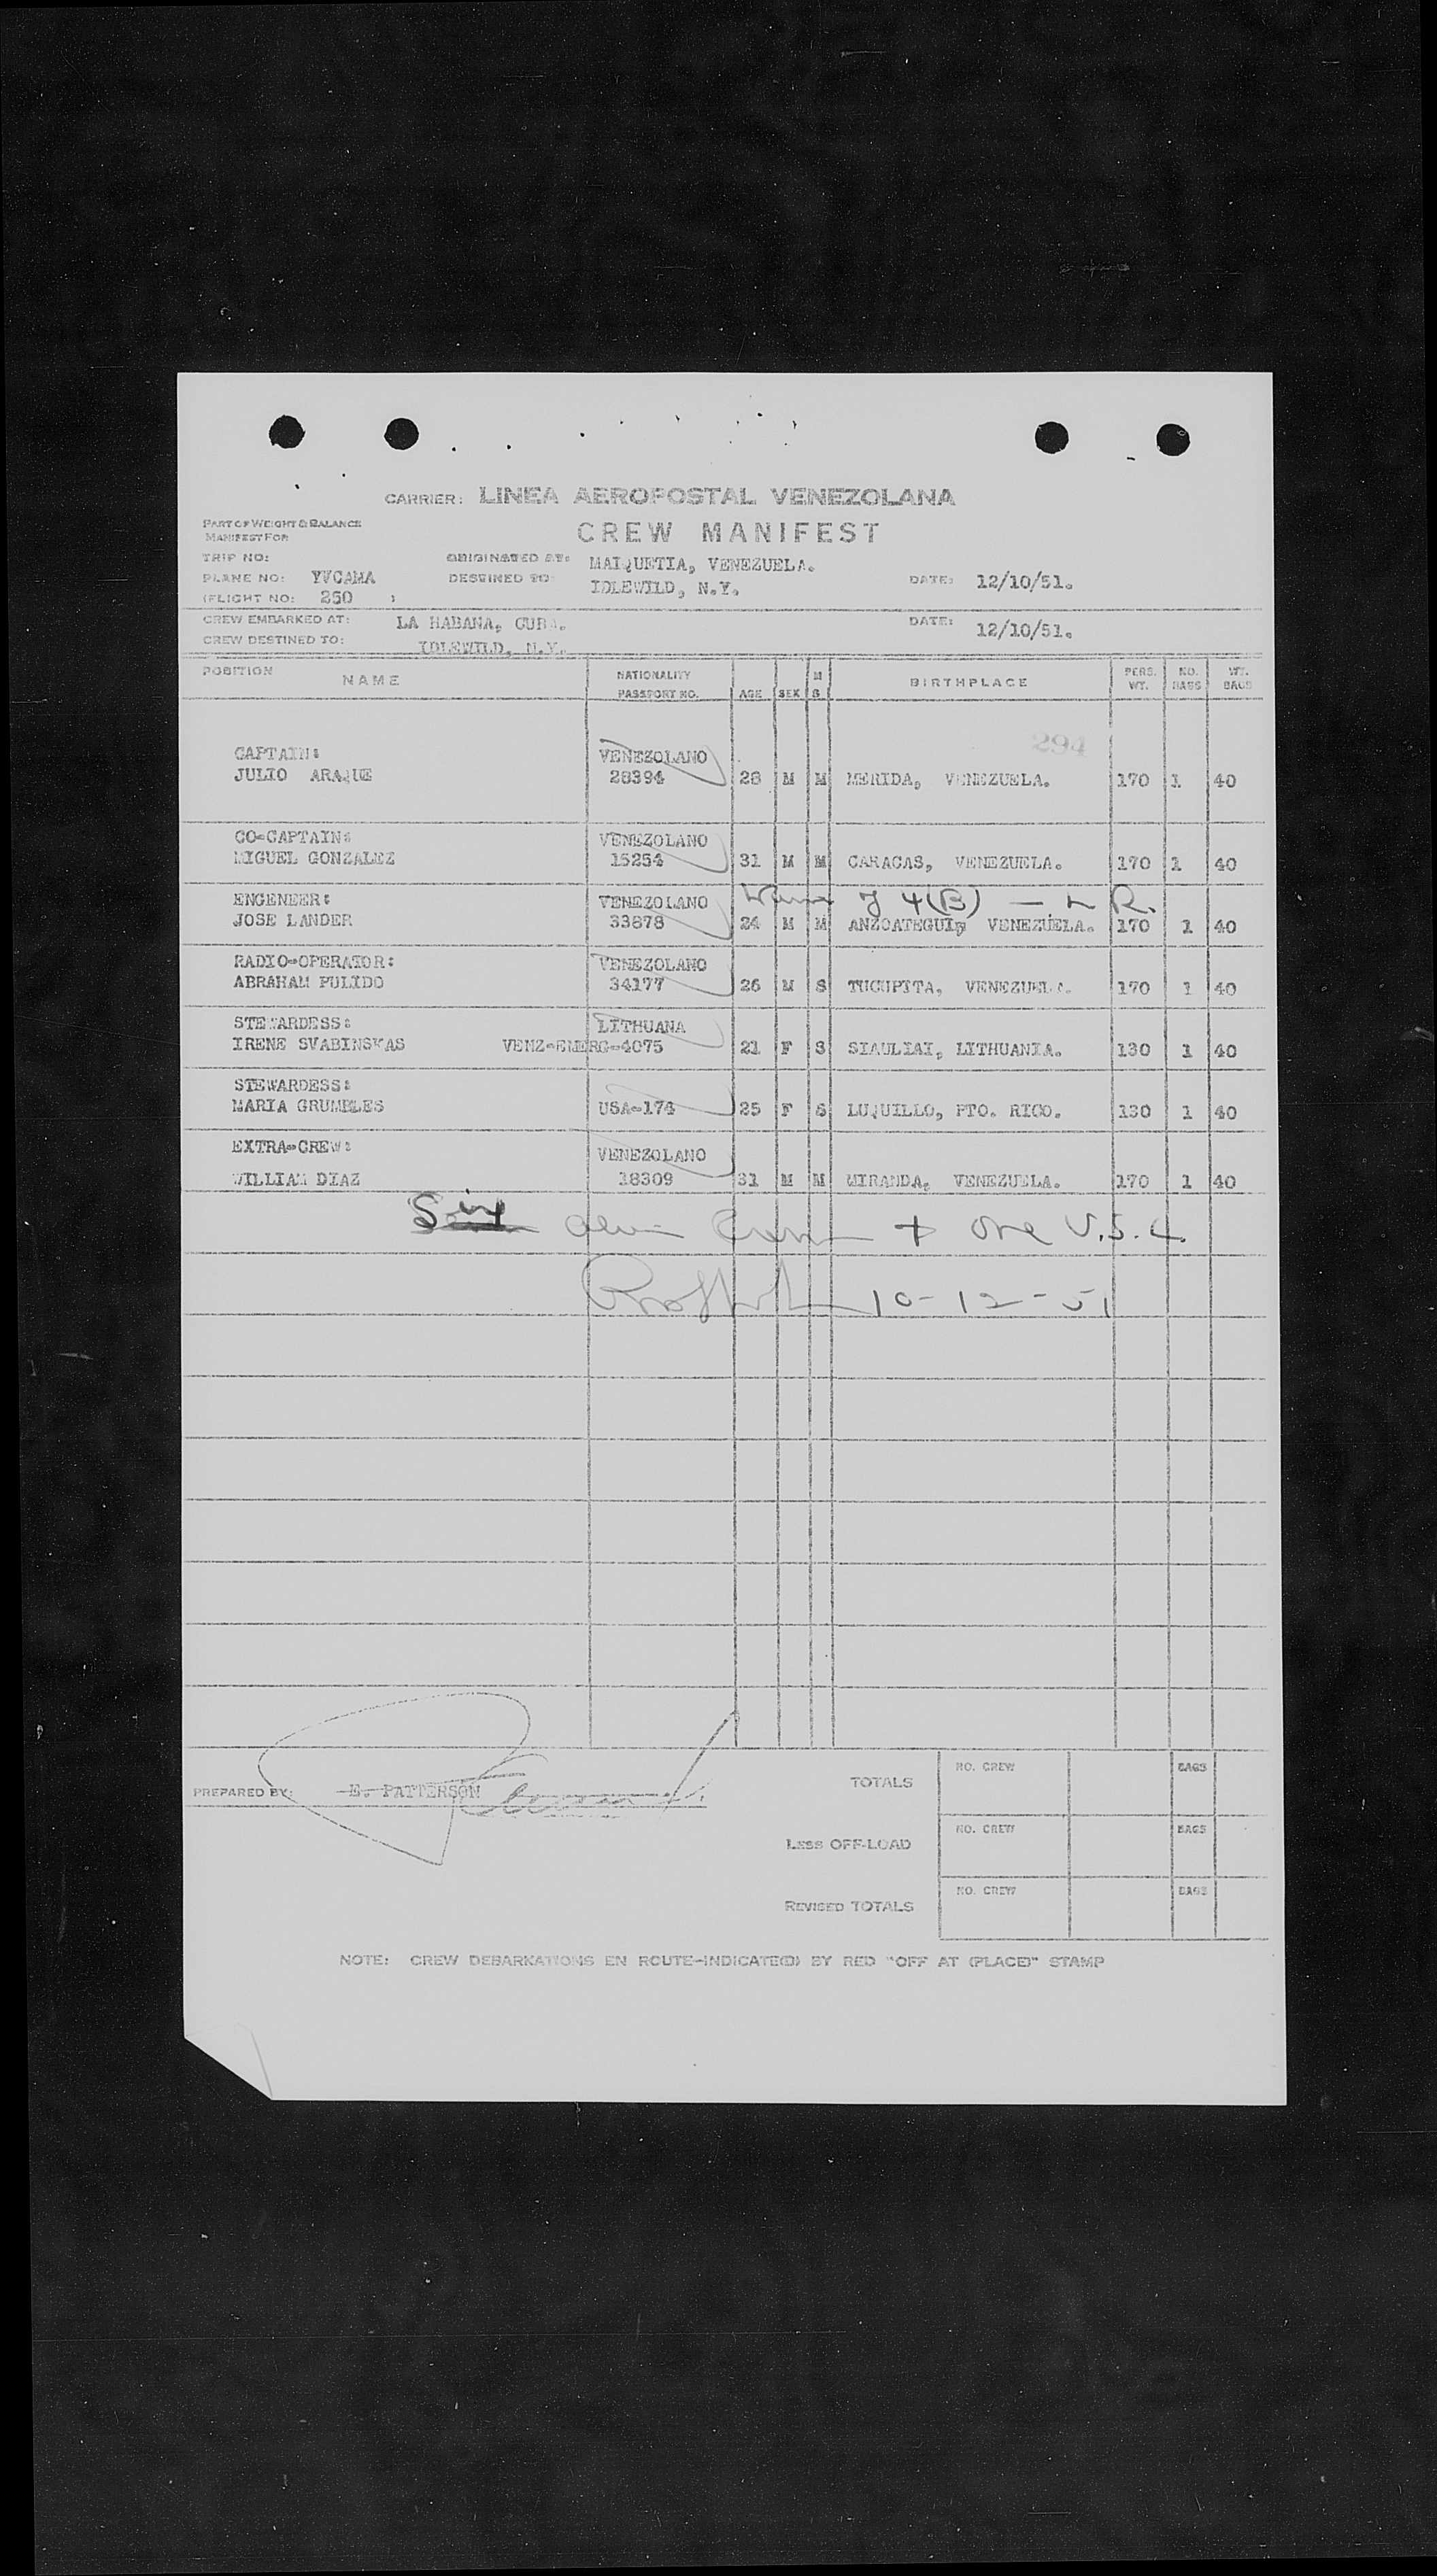 CARRIER: LINEA AEROPOSTAL VENEZOLANA
PART OF WEIGHT & BALANCE
MANIFEST FOR
CREW MANIFEST
TRIP NO: ORIGINATED AT: MAIQUETIA, VENEZUELA.
PLANE NO: YVCAMA DESTINED TO: IDLEWILD, N.Y. DATE: 12/10/51.
(FLIGHT NO: 250 )
CREW EMBARKED AT: LA HABANA, CUBA. DATE: 12/10/51.
CREW DESTINED TO: IDLEWILD, N.Y.
POSITION NAME NATIONALITY PASSPORT NO. AGE SEX M S BIRTHPLACE PERS. WT. NO. BAGS WT. BAGS
294
CAPTAIN: VENEZOLANO
JULIO ARAQUE 28394 28 M M MERIDA, VENEZUELA. 170 1 40
CO-CAPTAIN: VENEZOLANO
MIGUEL GONZALEZ 15254 31 M M CARACAS, VENEZUELA. 170 1 40
ENGENEER: VENEZOLANO 7 4(B) — R.
JOSE LANDER 33878 24 M M ANZOATEGUI, VENEZUELA. 170 1 40
RADIO-OPERATOR: VENEZOLANO
ABRAHAM PULIDO 34177 26 M S TUCUPITA, VENEZUELA. 170 1 40
STEWARDESS: LITHUANA
IRENE SVABINSKAS VENZ-EMERG-4075 21 F S SIAULIAI, LITHUANIA. 130 1 40
STEWARDESS:
MARIA GRUMBLES USA-174 25 F S LUQUILLO, PTO. RICO. 130 1 40
EXTRA-CREW: VENEZOLANO
WILLIAM DIAZ 18309 31 M M MIRANDA, VENEZUELA. 170 1 40
Six alien Crew + one U.S.C.
10-12-51
PREPARED BY: E. PATTERSON
TOTALS NO. CREW BAGS
LESS OFF-LOAD NO. CREW BAGS
REVISED TOTALS NO. CREW BAGS
NOTE: CREW DEBARKATIONS EN ROUTE-INDICATE(D) BY RED "OFF AT (PLACE)" STAMP